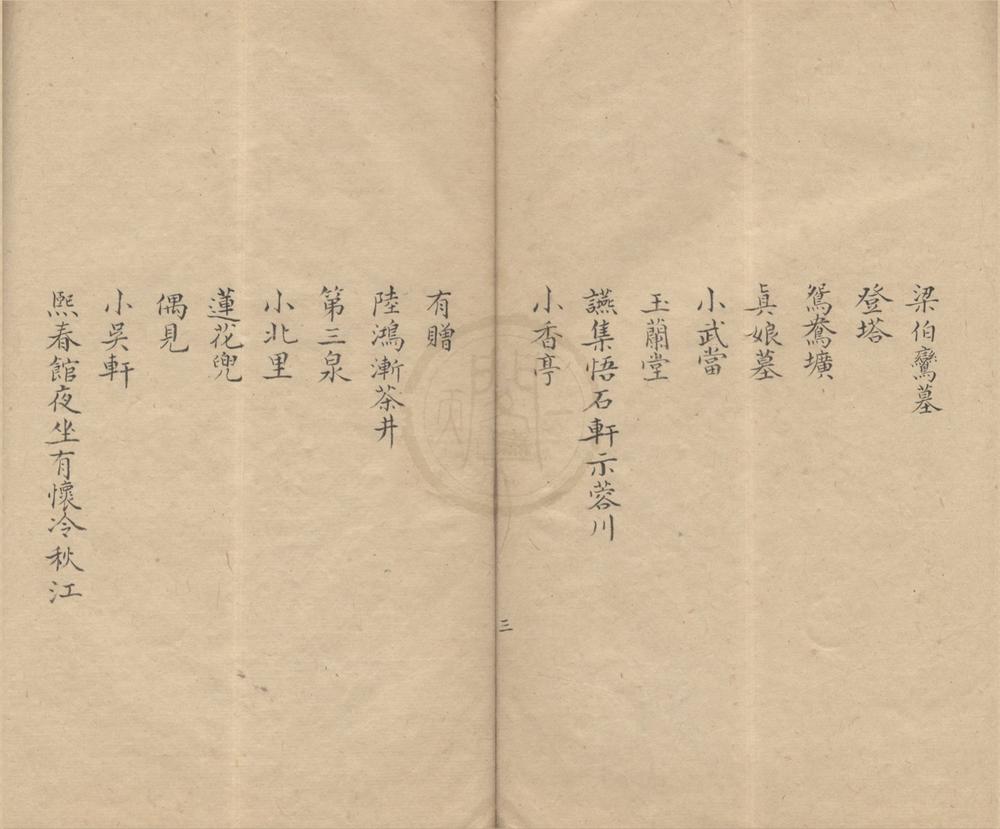 梁伯鸞墓
登塔
鴛鴦壙
真娘墓
小武當
玉蘭堂
讌集悟石軒示蓉川
小香亭
三
有贈
陸鴻漸茶井
第三泉
小北里
蓮花兜
偶見
小吳軒
熙春館夜坐有懷冷秋江